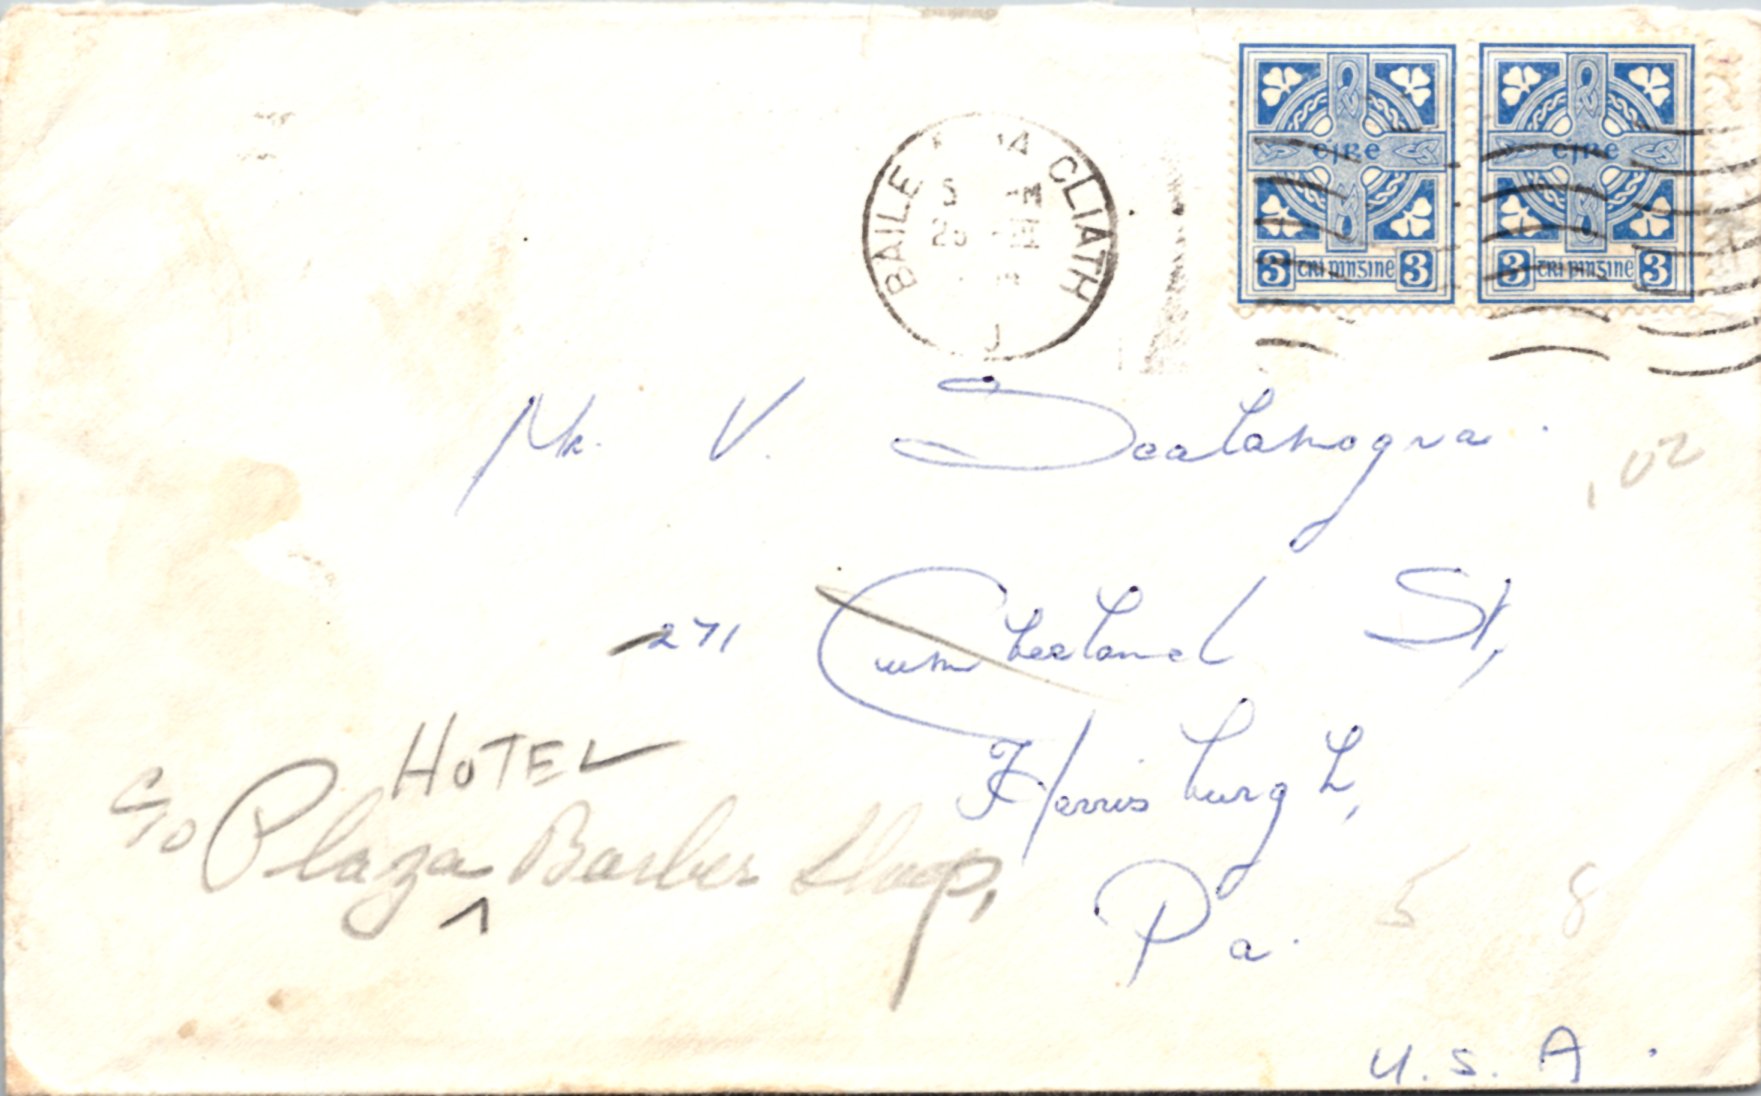 BAILE ÁTHA CLIATH
éire
3 trí pinġine 3
éire
3 trí pinġine 3
Mr. V. Scalamogna.
,02
271 Cumberland St,
Harrisburgh,
Pa.
U.S.A.
HOTEL
c/o Plaza ^ Barber Shop,
5 8